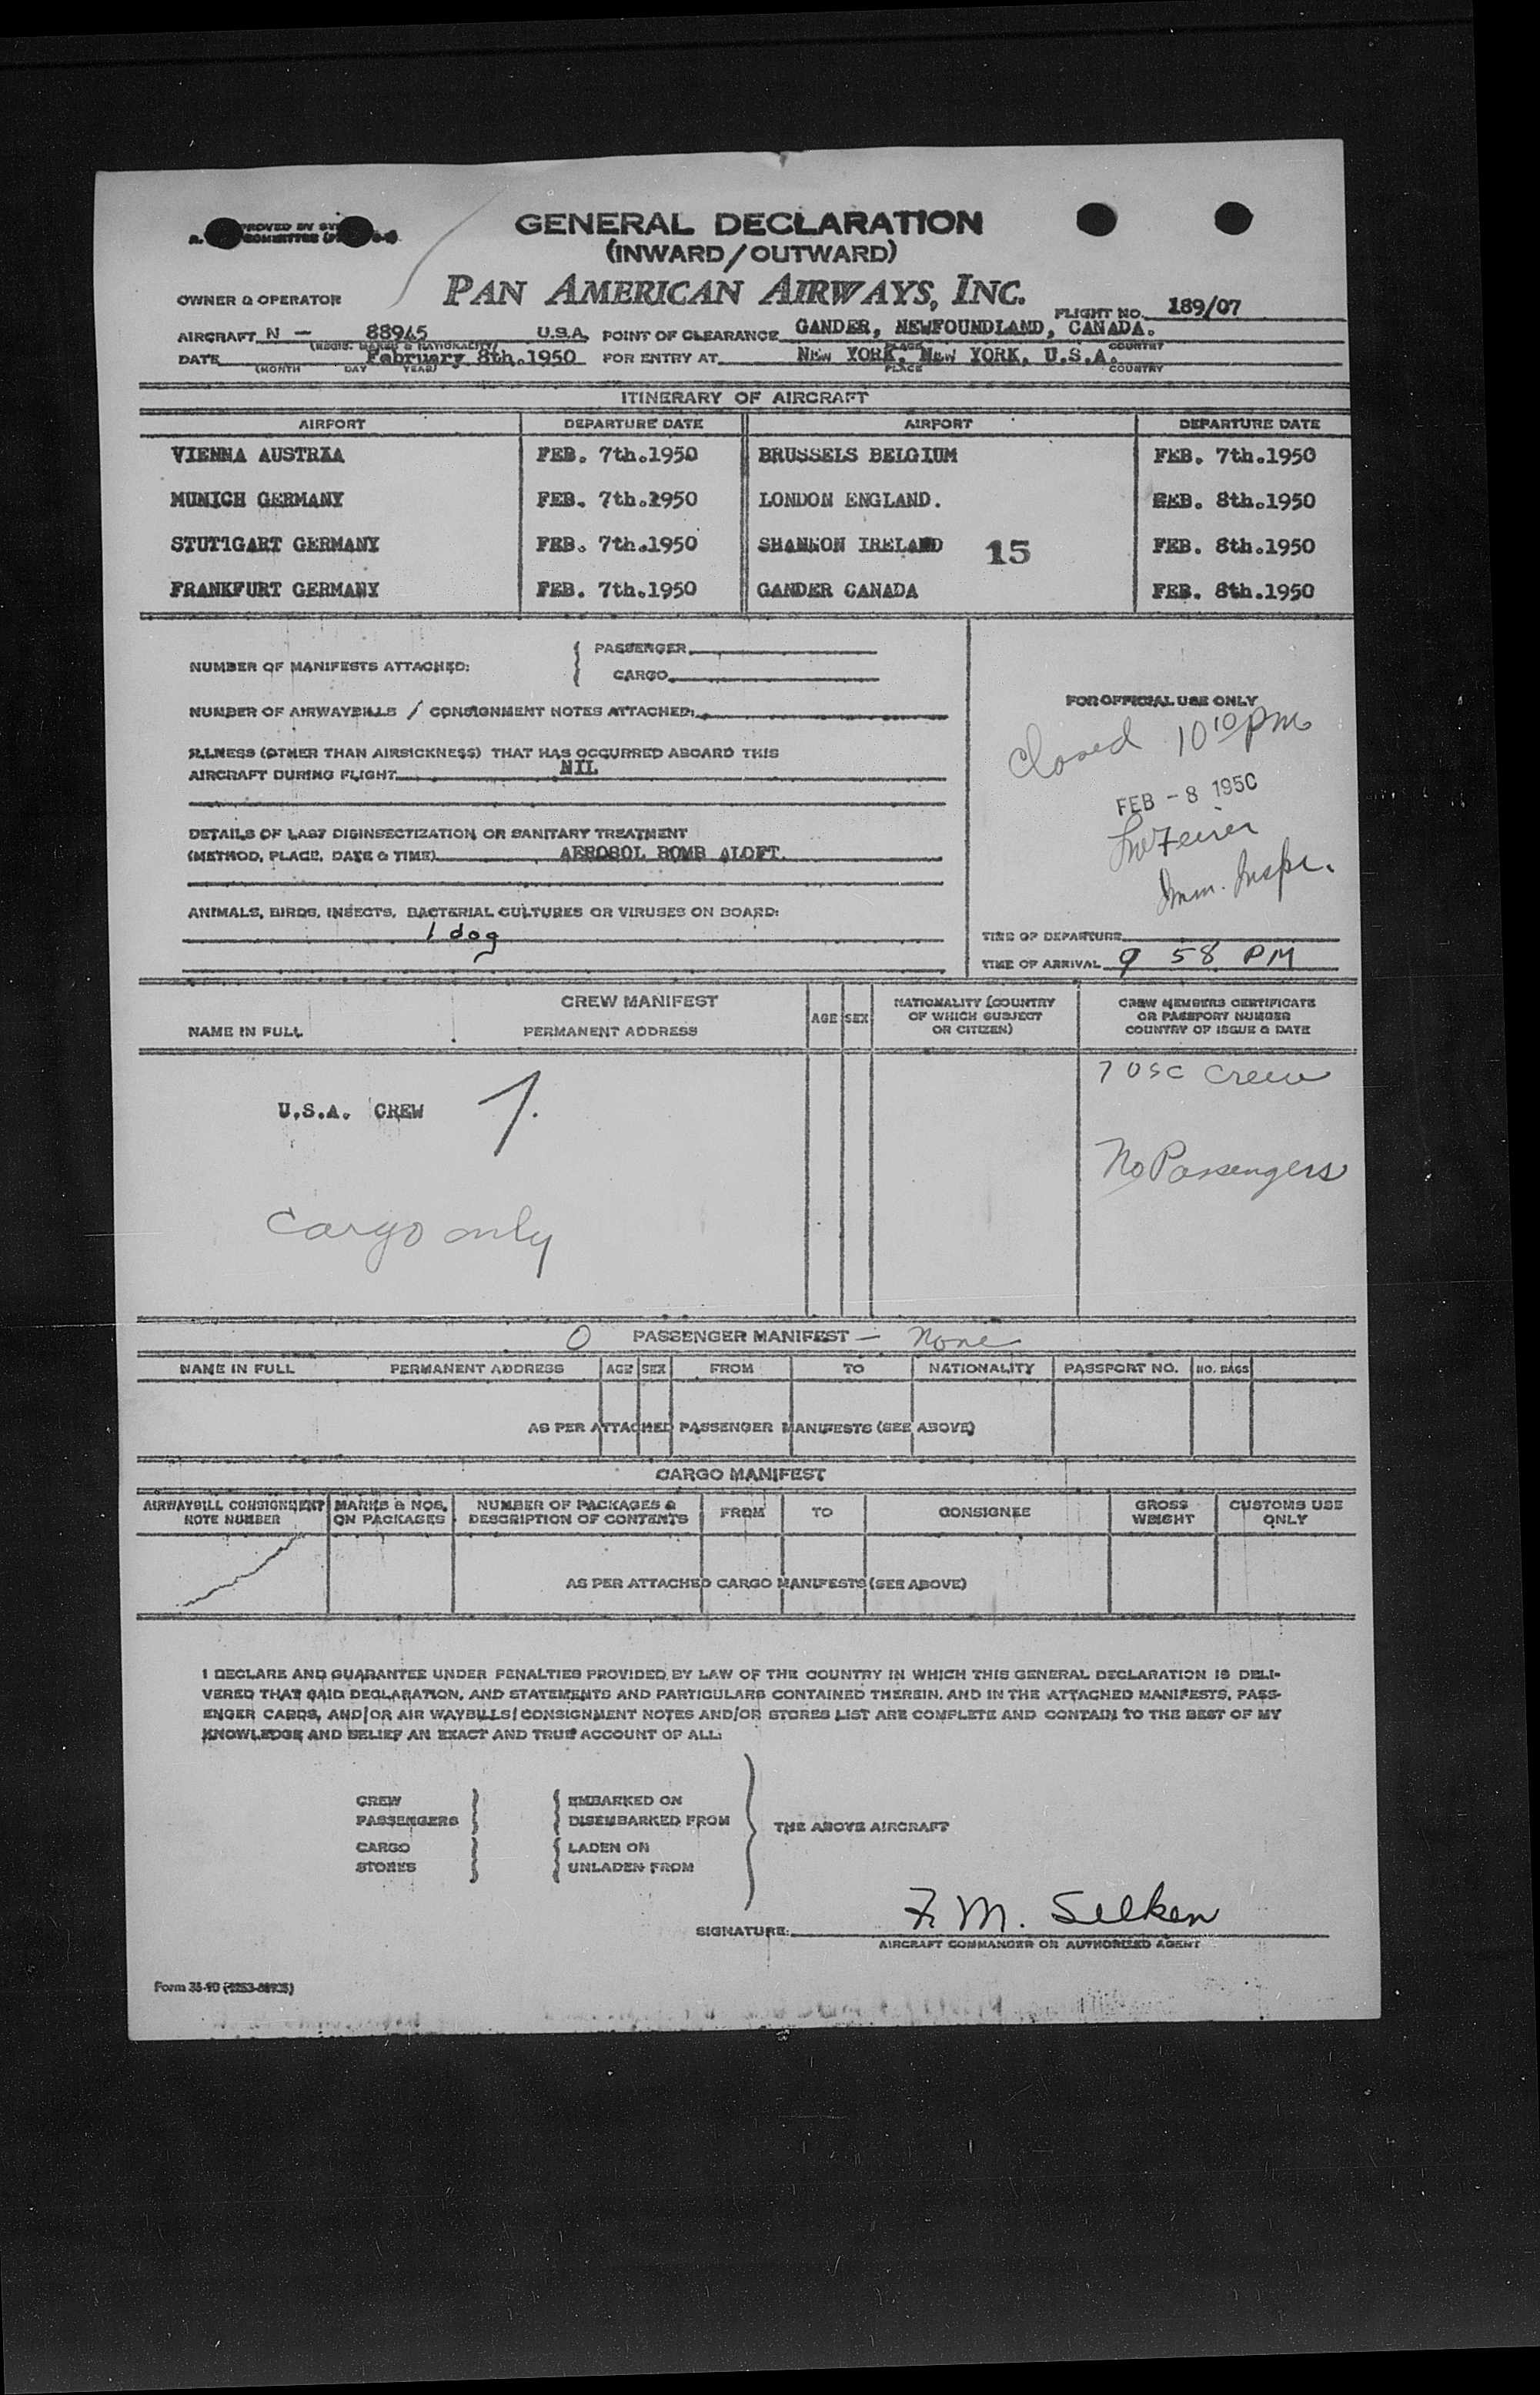 GENERAL DECLARATION
(INWARD/OUTWARD)
PAN AMERICAN AIRWAYS, INC.
OWNER & OPERATOR
FLIGHT NO. 189/07
AIRCRAFT N - 88945 U.S.A. POINT OF CLEARANCE GANDER, NEWFOUNDLAND, CANADA.
(REGIS. MARKS & NATIONALITY) PLACE COUNTRY
DATE February 8th.1950 FOR ENTRY AT NEW YORK, NEW YORK, U.S.A.
(MONTH DAY YEAR) PLACE COUNTRY
ITINERARY OF AIRCRAFT
AIRPORT DEPARTURE DATE AIRPORT DEPARTURE DATE
VIENNA AUSTRIA FEB. 7th.1950 BRUSSELS BELGIUM FEB. 7th.1950
MUNICH GERMANY FEB. 7th.1950 LONDON ENGLAND. FEB. 8th.1950
STUTTGART GERMANY FEB. 7th.1950 SHANNON IRELAND 15 FEB. 8th.1950
FRANKFURT GERMANY FEB. 7th.1950 GANDER CANADA FEB. 8th.1950
NUMBER OF MANIFESTS ATTACHED: PASSENGER
CARGO
FOR OFFICIAL USE ONLY
NUMBER OF AIRWAYBILLS / CONSIGNMENT NOTES ATTACHED:
Closed 10 10 PM
ILLNESS (OTHER THAN AIRSICKNESS) THAT HAS OCCURRED ABOARD THIS
AIRCRAFT DURING FLIGHT NIL
FEB - 8 1950
DETAILS OF LAST DISINSECTIZATION OR SANITARY TREATMENT
(METHOD, PLACE, DATE & TIME) AEROSOL BOMB ALOFT.
Imm. Inspr.
ANIMALS, BIRDS, INSECTS, BACTERIAL CULTURES OR VIRUSES ON BOARD:
1 dog
TIME OF DEPARTURE
TIME OF ARRIVAL 9 58 PM
CREW MANIFEST
NAME IN FULL PERMANENT ADDRESS AGE SEX NATIONALITY (COUNTRY
OF WHICH SUBJECT
OR CITIZEN)
CREW MEMBERS CERTIFICATE
OR PASSPORT NUMBER
COUNTRY OF ISSUE & DATE
7 USC Crew
U.S.A. CREW 7.
No Passengers
Cargo only
0 PASSENGER MANIFEST - None
NAME IN FULL PERMANENT ADDRESS AGE SEX FROM TO NATIONALITY PASSPORT NO. NO. BAGS
AS PER ATTACHED PASSENGER MANIFESTS (SEE ABOVE)
CARGO MANIFEST
AIRWAYBILL CONSIGNMENT
NOTE NUMBER
MARKS & NOS.
ON PACKAGES
NUMBER OF PACKAGES &
DESCRIPTION OF CONTENTS
FROM TO CONSIGNEE GROSS
WEIGHT
CUSTOMS USE
ONLY
AS PER ATTACHED CARGO MANIFESTS (SEE ABOVE)
I DECLARE AND GUARANTEE UNDER PENALTIES PROVIDED BY LAW OF THE COUNTRY IN WHICH THIS GENERAL DECLARATION IS DELI-
VERED THAT SAID DECLARATION, AND STATEMENTS AND PARTICULARS CONTAINED THEREIN, AND IN THE ATTACHED MANIFESTS, PASS-
ENGER CARDS, AND/OR AIR WAYBILLS/CONSIGNMENT NOTES AND/OR STORES LIST ARE COMPLETE AND CONTAIN TO THE BEST OF MY
KNOWLEDGE AND BELIEF AN EXACT AND TRUE ACCOUNT OF ALL:
CREW EMBARKED ON
PASSENGERS DISEMBARKED FROM
THE ABOVE AIRCRAFT
CARGO LADEN ON
STORES UNLADEN FROM
SIGNATURE: F. M. Selken
AIRCRAFT COMMANDER OR AUTHORIZED AGENT
Form 35-90